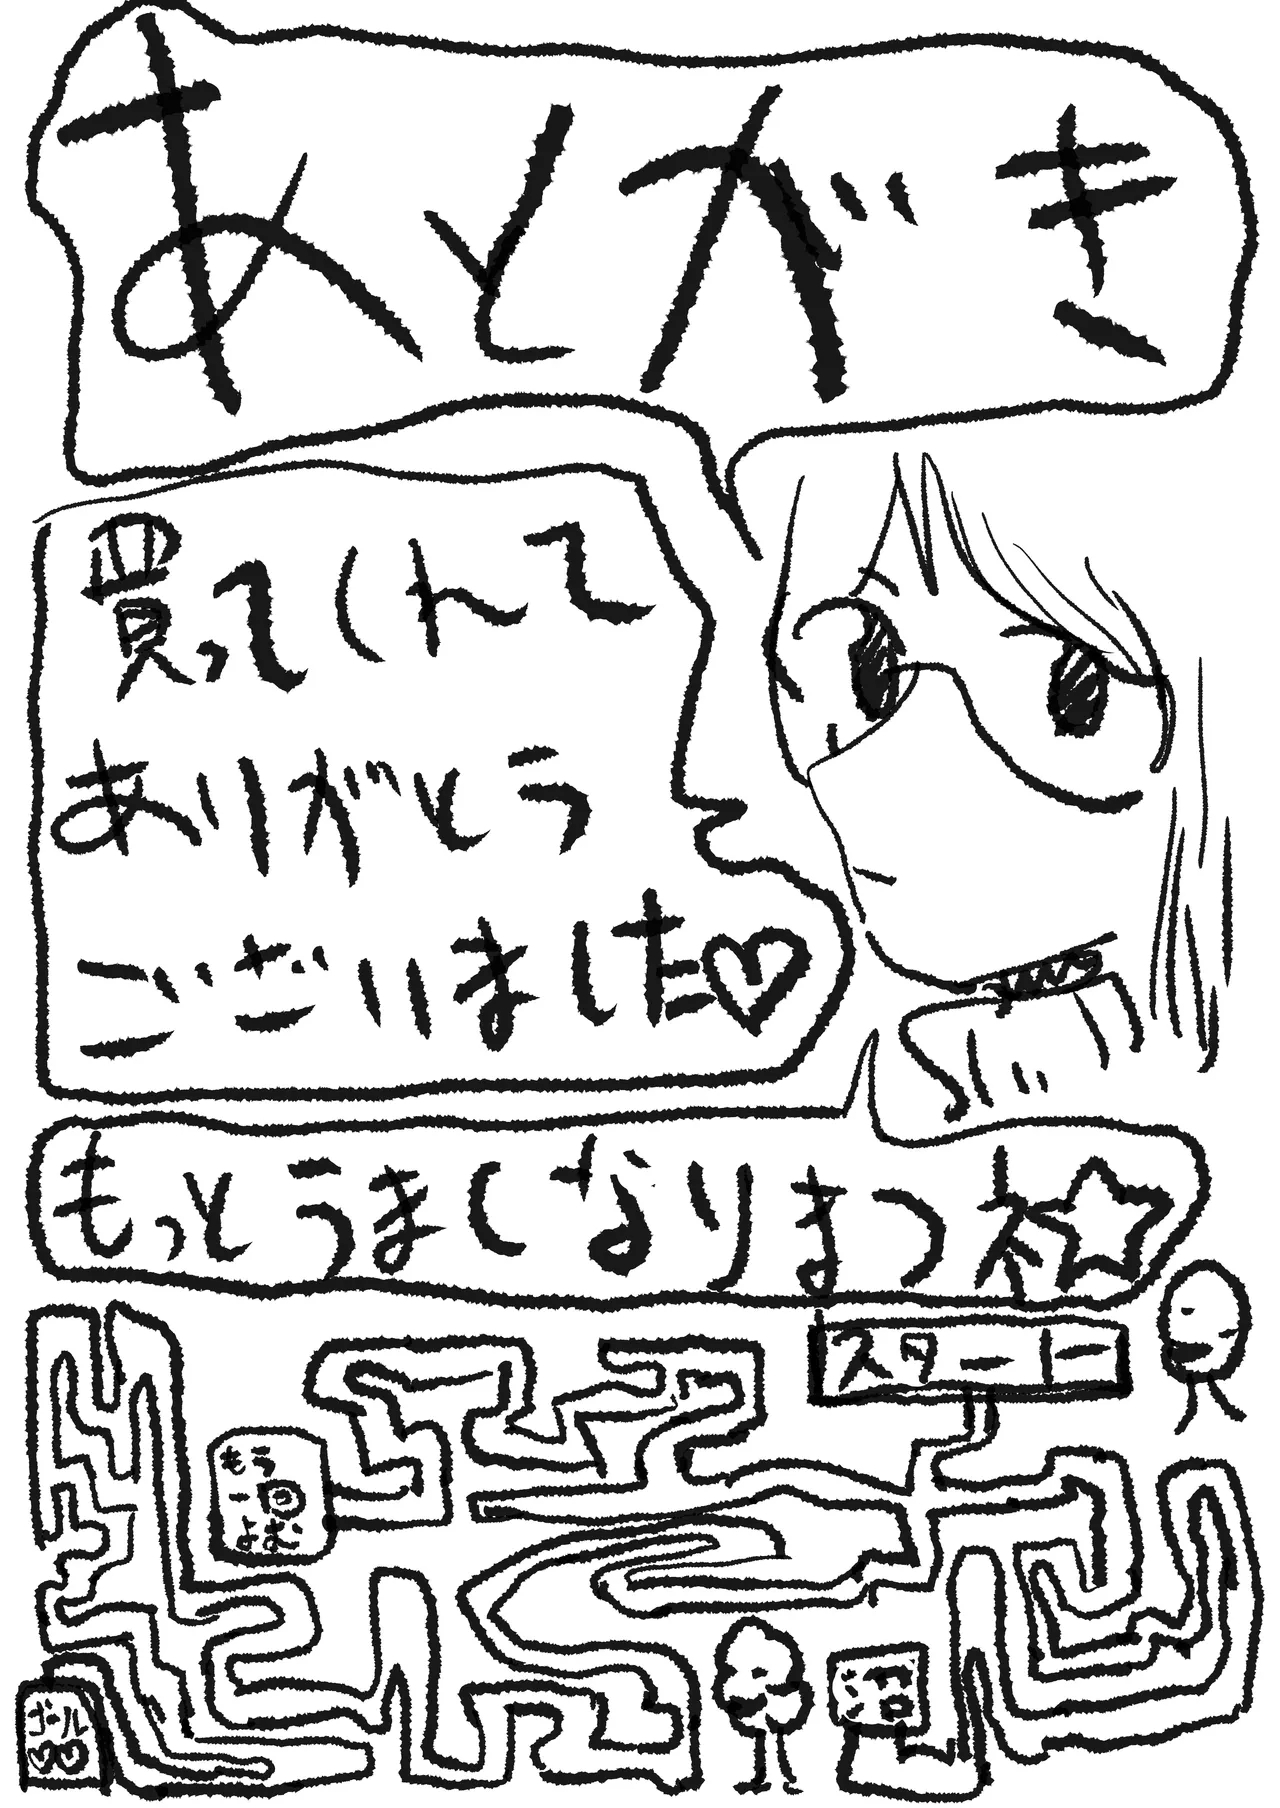 あとがき
買ってくれて
ありがとう
ございました♡
もっとうまくなりまつネ☆
スタート
もう
ゴール